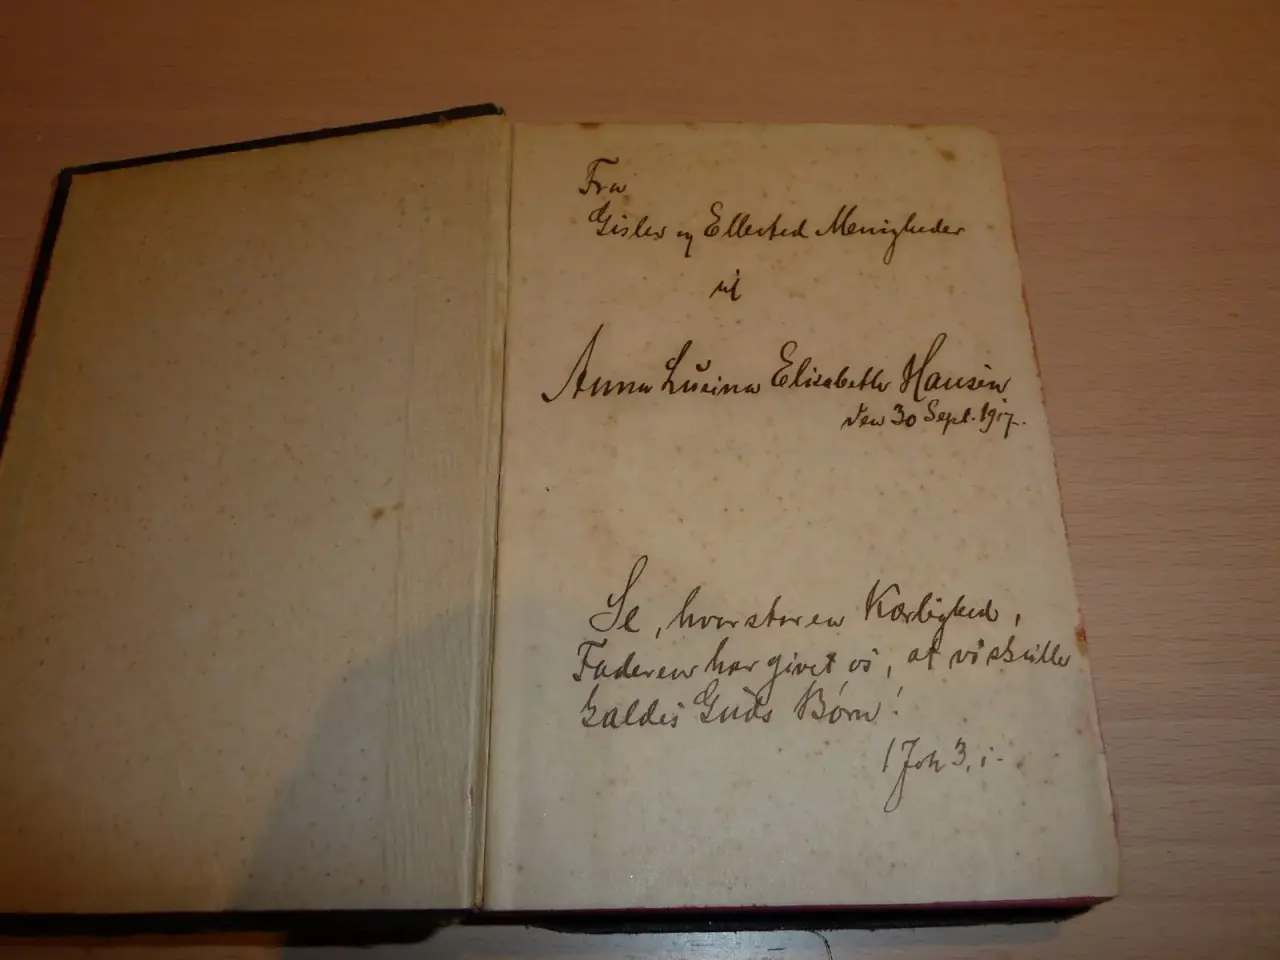 Fra
Gislev og Ellested Menigheder
til
Anna Lucina Elisabeth Hansen
den 30 Sept. 1917.
Se, hvor stor en Kærlighed,
Faderen har givet os, at vi skulle
kaldes Guds Børn!
1 Joh 3, 1.